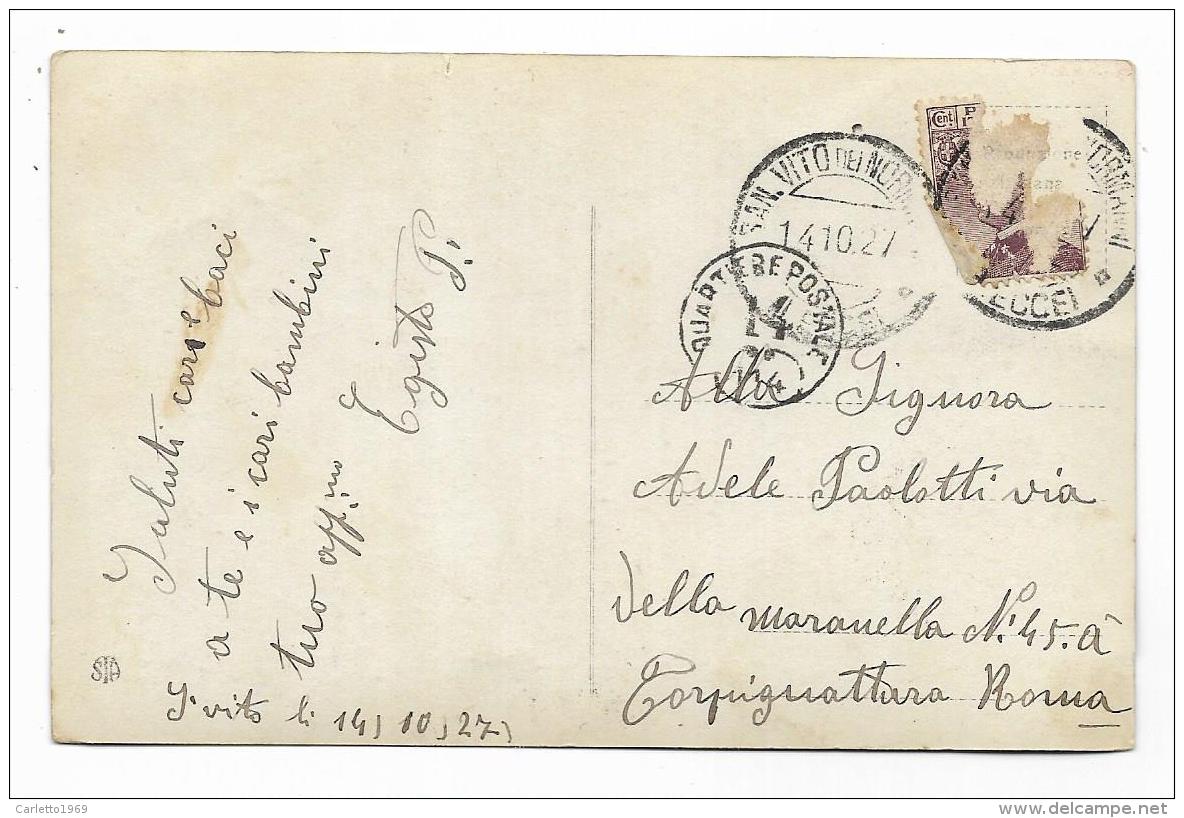 Saluti cari e baci
a te e i cari bambini
tuo aff.mo
Egisto P.
S. vito li 14, 10, 27,
STA
Cent.
Produzione
SAN. VITO DEI NORM
14 10.27
ORMANNI
LECCE
QUARTIERE POSTALE
Alla Signora
Adele Paolotti via
della maranella N. 45. a
Torpignattara Roma
Carletto1969
delcampe.net